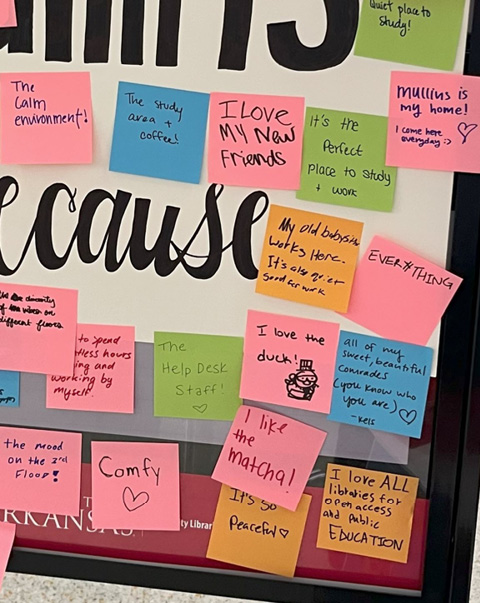 Quiet place to
study!
The
Calm
environment!
The study
area +
coffee!
I LOVE
MY New
Friends
It's the
Perfect
place to study
+ work
Mullins is
my home!
I come here
everyday :)
ecause
My old babysitter
works Here.
It's also quiet
good for work
EVERYTHING
diversity
of the vibes on
different floors.
to spend
hours
ing and
working by
myself.
The
Help Desk
Staff!
I love the
duck!
all of my
sweet, beautiful
comrades
(you know who
you are)
- Kels
the mood
on the 3rd
Floor!
Comfy
I like
the
matcha!
It's so
Peaceful
I love ALL
libraries for
open access
and Public
EDUCATION
RKANSAS
ty Librar